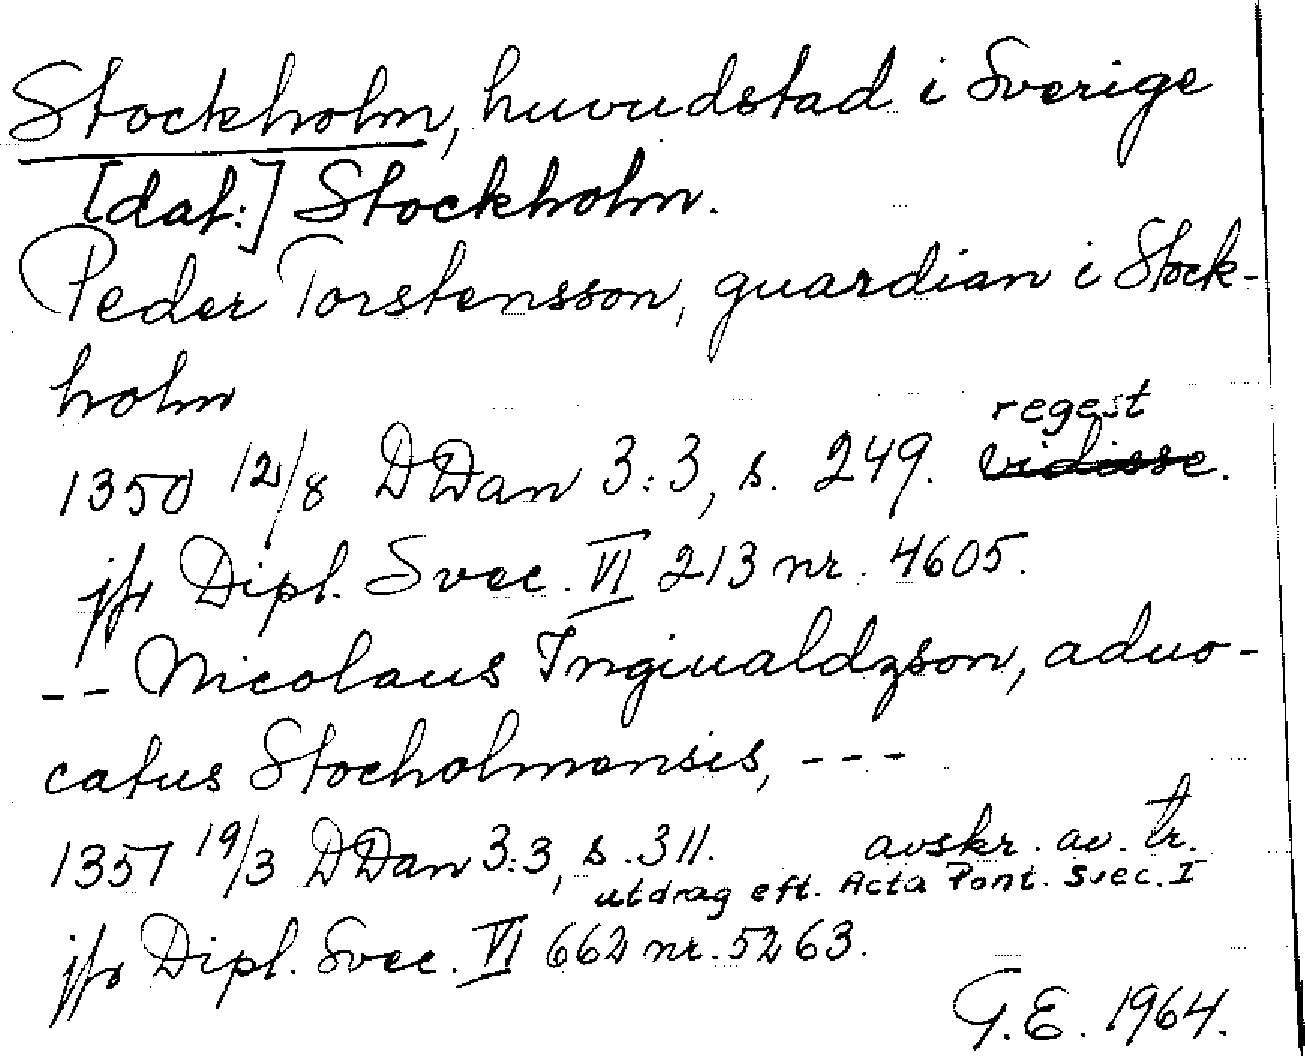 Stockholm, huvudstad i Sverige
[dat:] Stockholm.
Peder Torstensson, guardian i Stock-
holm
regest
1350 12/8 DDan 3:3, s. 249. vidisse.
jfr Dipl. Svec. VI 213 nr. 4605.
-- Nicolaus Ingiualdzson, aduo-
catus Stocholmensis, ---
1351 19/3 DDan 3:3, s. 311. avskr. av. tr.
utdrag eft. Acta Pont. Svec. I
jfr Dipl. Svec. VI 662 nr. 5263.
G.E. 1964.